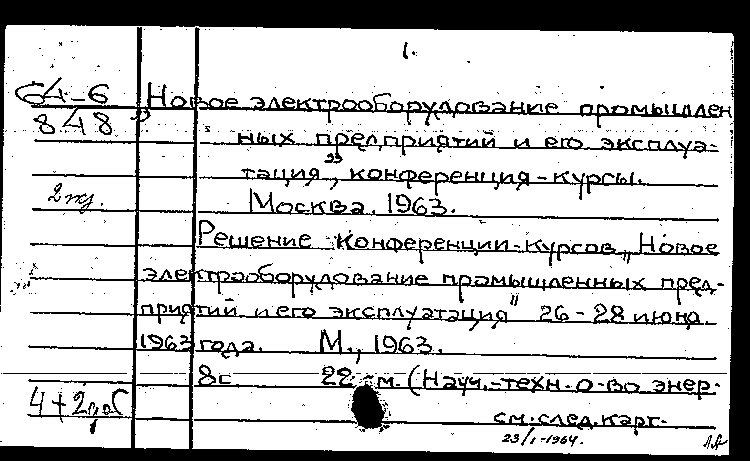 1.
64-6
848
„Новое электрооборудование промышлен
ных предприятий и его эксплуа-
тация", конференция-курсы.
2 экз.
Москва, 1963.
Решение конференции-курсов „Новое
электрооборудование промышленных пред-
приятий и его эксплуатация" 26-28 июня
1963 года. М., 1963.
8с. 22 см. (Науч.-техн. о-во энер-
4+2
см. след. карт.
23/I-1964.